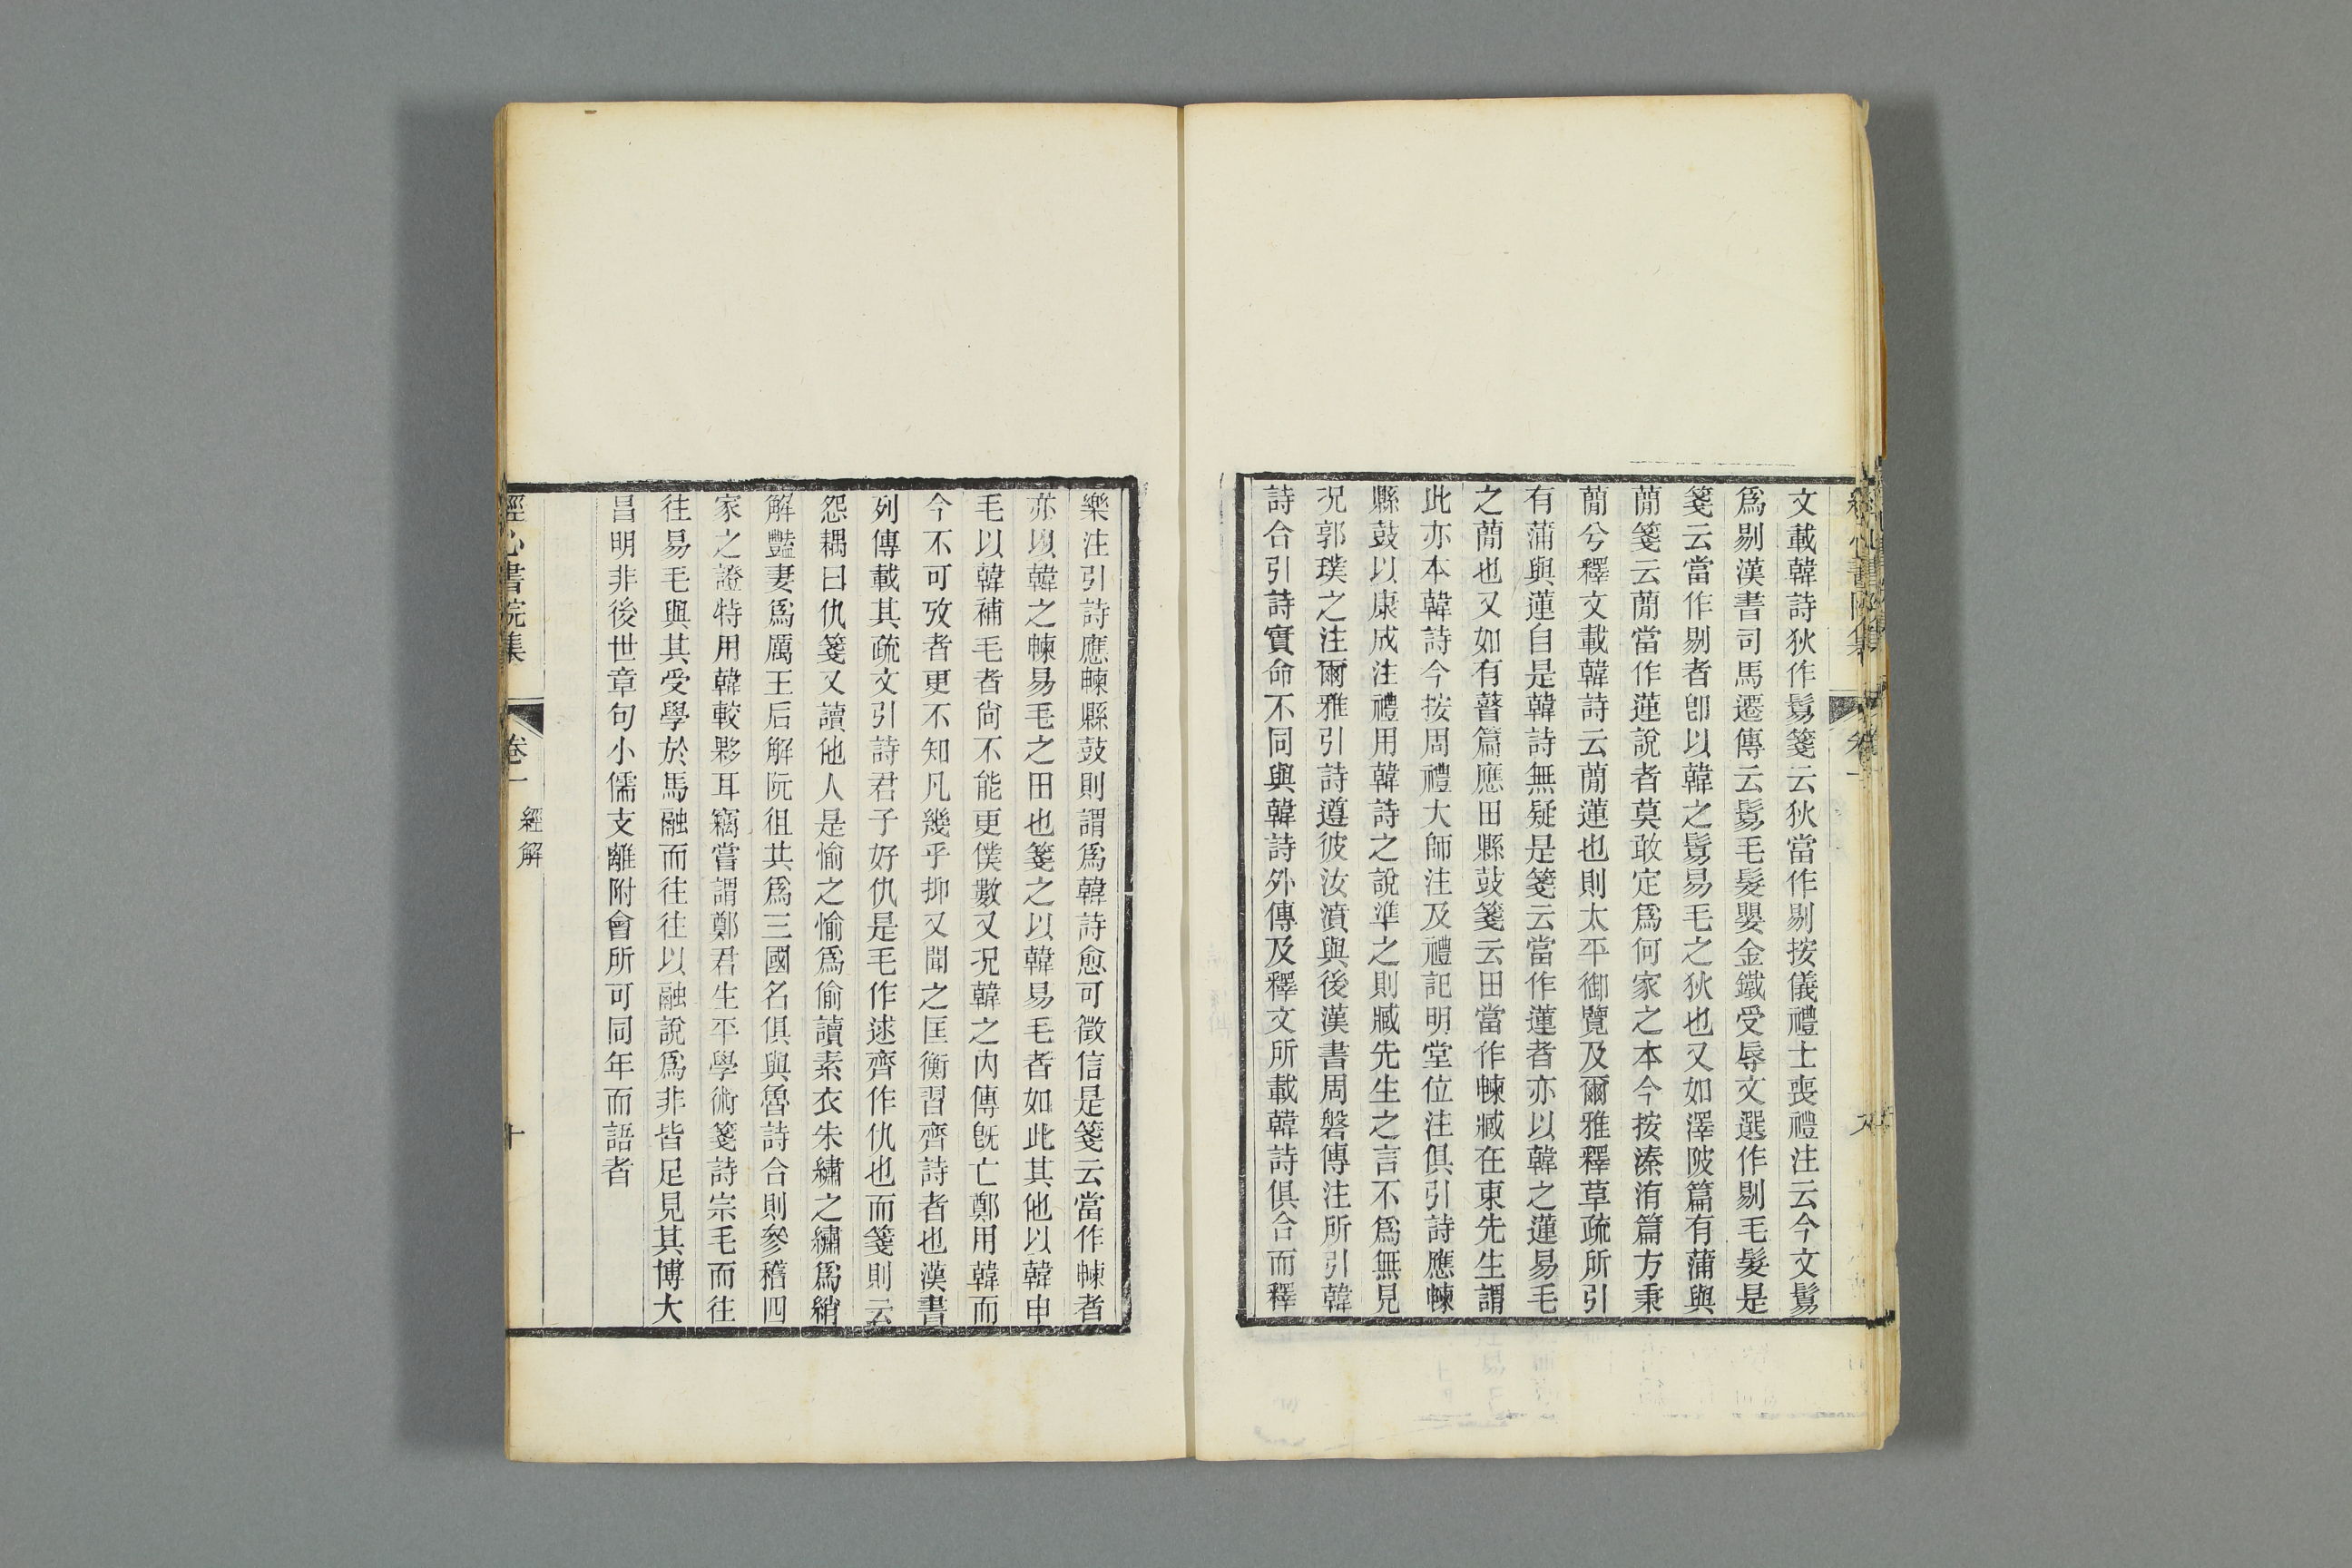 文載韓詩狄作鬄箋云狄當作剔按儀禮士喪禮注云今文鬄
爲剔漢書司馬遷傳云鬄毛髮嬰金鐵受辱文選作剔毛髮是
箋云當作剔者卽以韓之鬄易毛之狄也又如澤陂篇有蒲與
蕑箋云蕑當作蓮說者莫敢定爲何家之本今按溱洧篇方秉
蕑兮釋文載韓詩云蕑蓮也則太平御覽及爾雅釋草疏所引
有蒲與蓮自是韓詩無疑是箋云當作蓮者亦以韓之蓮易毛
之蕑也又如有瞽篇應田縣鼓箋云田當作朄臧在東先生謂
此亦本韓詩今按周禮大師注及禮記明堂位注俱引詩應朄
縣鼓以康成注禮用韓詩之說準之則臧先生之言不爲無見
况郭璞之注爾雅引詩遵彼汝濆與後漢書周磐傳注所引韓
詩合引詩實命不同與韓詩外傳及釋文所載韓詩俱合而釋
樂注引詩應朄縣鼓則謂爲韓詩愈可徵信是箋云當作朄者
亦以韓之朄易毛之田也箋之以韓易毛者如此其他以韓申
毛以韓補毛者尙不能更僕數又况韓之内傳旣亡鄭用韓而
今不可攷者更不知凡幾乎抑又聞之匡衡習齊詩者也漢書
列傳載其疏文引詩君子好仇是毛作逑齊作仇也而箋則云
怨耦曰仇箋又讀他人是愉之愉爲偷讀素衣朱繡之繡爲綃
解豔妻爲厲王后解阮徂共爲三國名俱與魯詩合則參稽四
家之證特用韓較夥耳竊嘗謂鄭君生平學術箋詩宗毛而往
往易毛與其受學於馬融而往往以融說爲非皆足見其博大
昌明非後世章句小儒支離附會所可同年而語者
經心書院集
卷一
經解
十